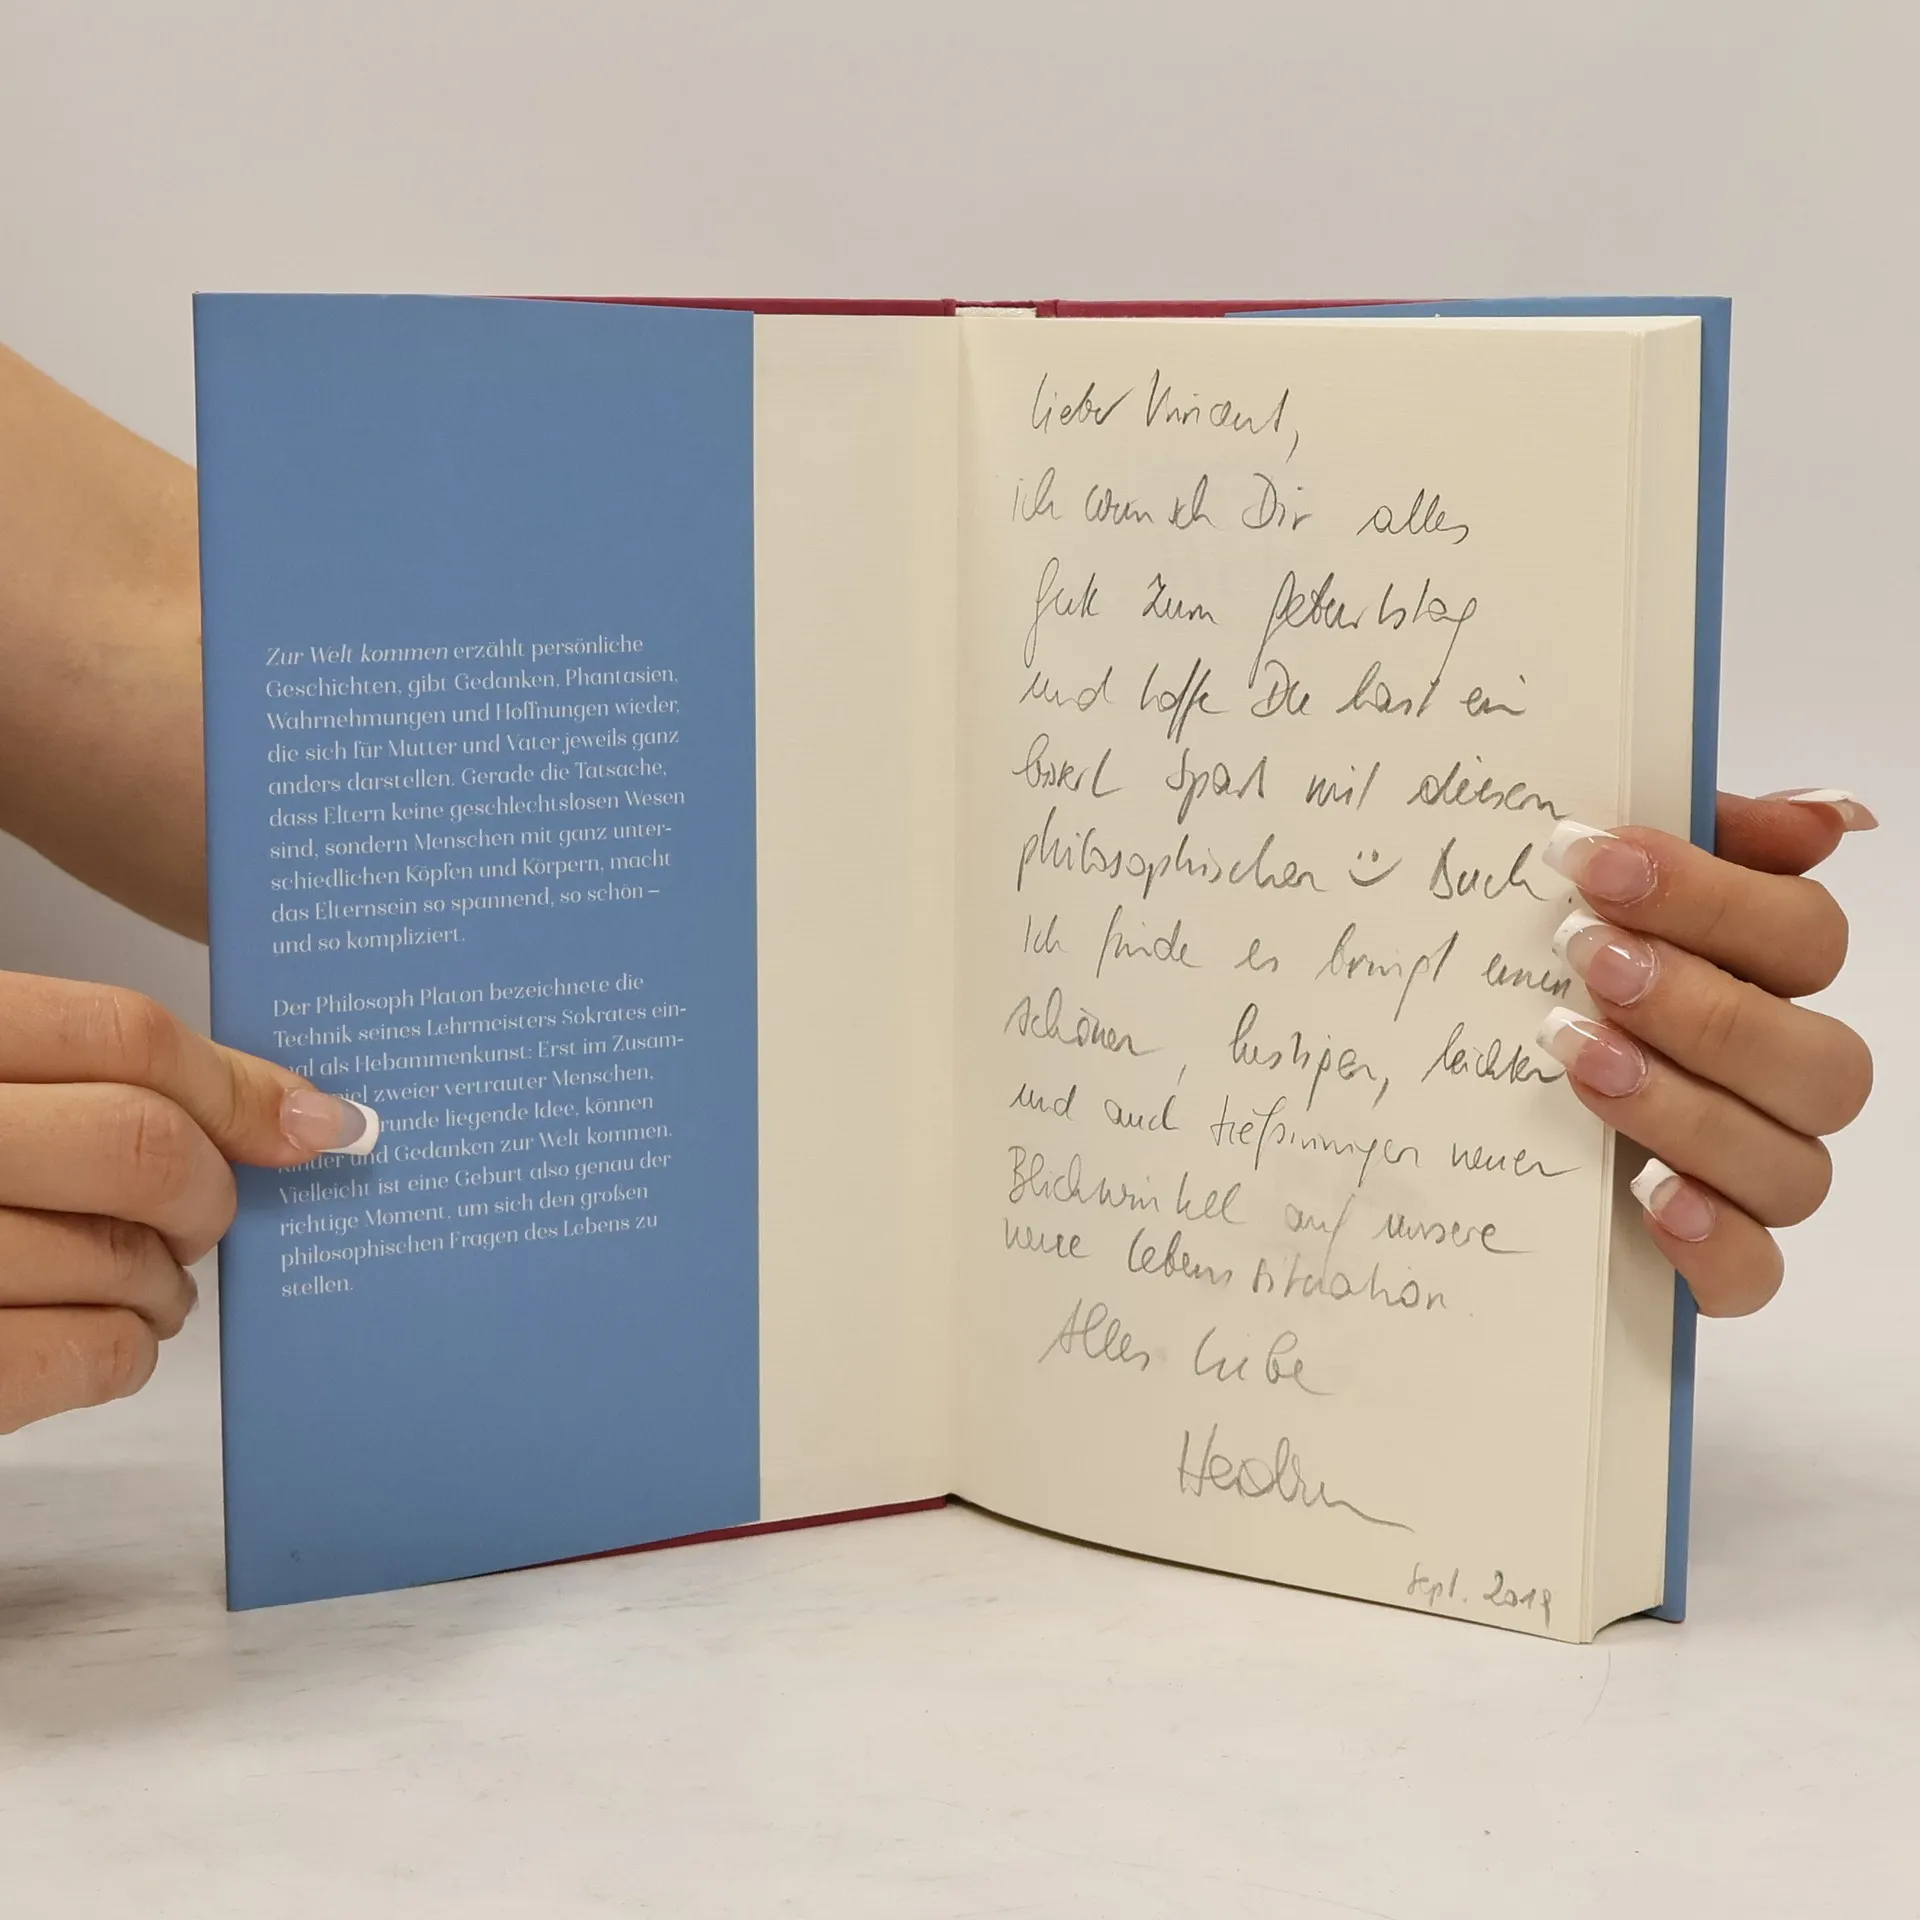 Zur Welt kommen erzählt persönliche
Geschichten, gibt Gedanken, Phantasien,
Wahrnehmungen und Hoffnungen wieder,
die sich für Mutter und Vater jeweils ganz
anders darstellen. Gerade die Tatsache,
dass Eltern keine geschlechtslosen Wesen
sind, sondern Menschen mit ganz unter-
schiedlichen Köpfen und Körpern, macht
das Elternsein so spannend, so schön –
und so kompliziert.
Der Philosoph Platon bezeichnete die
Technik seines Lehrmeisters Sokrates ein-
mal als Hebammenkunst: Erst im Zusam-
zweier vertrauter Menschen,
liegende Idee, können
Kinder und Gedanken zur Welt kommen.
Vielleicht ist eine Geburt also genau der
richtige Moment, um sich den großen
philosophischen Fragen des Lebens zu
stellen.
Lieber Vincent,
ich wünsch Dir alles
Gute zum Geburtstag
und hoffe Du hast ein
bisserl Spaß mit diesem
philosophischen Buch.
Ich finde es bringt einen
schönen, lustigen, leichten
und auch tiefsinnigen neuen
Blickwinkel auf unsere
neue Lebenssituation.
Alles Liebe
Sept. 2019